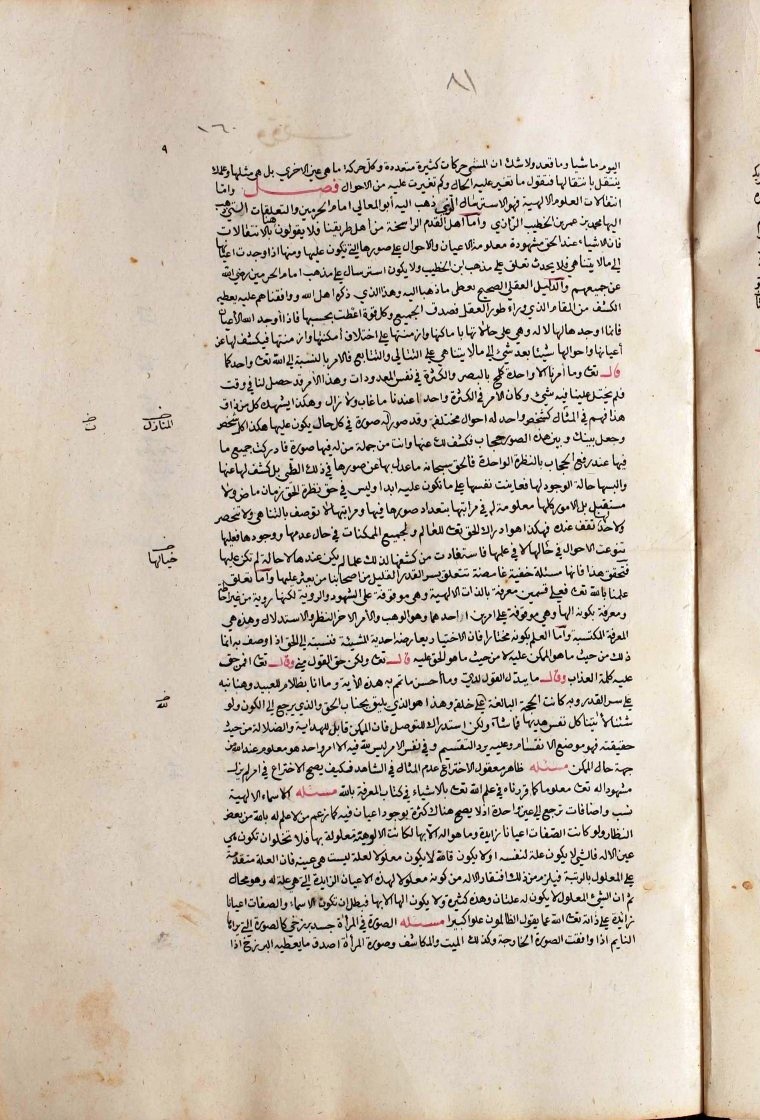 ٨١
١٦٠
٩
اليوم ماشيا وما قعد ولا شك ان المشى حركات كثيرة متعددة وكل حركة ما هى عين الاخرى بل هى مثلها وعلمك
ينتقل بانتقالها فنقول ما تغير عليه الحال وكم تغيرت عليه من الاحوال فصل واما
انتقالات العلوم الالهية فهو الاسترسال الذى ذهب اليه ابو المعالى امام الحرمين والتعلقات التى ذهب
اليها محمد بن عمر بن الخطيب الرازى واما اهل القدم الراسخة من اهل طريقنا فلا يقولون هنا بالانتقالات
فان الاشياء عند الحق مشهودة معلومة الاعيان والاحوال على صورها التى تكون عليها ومنها اذا وجدت اعيانها
الى ما لا يتناهى فلا يحدث تعلق على مذهب ابن الخطيب ولا يكون استرسال على مذهب امام الحرمين رضى الله
عن جميعهم والدليل العقلى الصحيح يعطى ما ذهبنا اليه وهذا الذى ذكره اهل الله ووافقناهم عليه يعطيه
الكشف من المقام الذى وراء طور العقل فصدق الجميع وكل قوة اعطت بحسبها فاذا اوجد الله الاعيان
فانما اوجدها لها لا له وهى على حالاتها باماكنها وازمنتها على اختلاف امكنتها وازمنتها فيكشف لها عن
اعيانها واحوالها شيئا بعد شئ الى ما لا يتناهى على التتالى والتتابع فالامر بالنسبة الى الله تعالى واحد كما
قال تعالى وما امرنا الا واحدة كلمح بالبصر والكثرة فى نفس المعدودات وهذا الامر قد حصل لنا فى وقت
فلم يختل علينا فيه شئ وكان الامر فى الكثرة واحدا عندنا ما غاب ولا زال وهكذا يشهده كل من ذاق
هذا فهم فى المثال كشخص واحد له احوال مختلفة وقد صورت له صورة فى كل حال يكون عليها هكذا كل شخص
وجعل بينك وبين هذه الصور حجاب فكشف لك عنها وانت من جملة من له فيها صورة فادركت جميع ما
فيها عند رفع الحجاب بالنظرة الواحدة فالحق سبحانه ما عدل بها عن صورها فى ذلك الطبق بل كشف لها عنها
والبسها حالة الوجود لها فعاينت نفسها على ما تكون عليه ابدا وليس فى حق نظرة الحق زمان ماض ولا
مستقبل بل الامور كلها معلومة له فى مراتبها بتعداد صورها فيها ومراتبها لا توصف بالتناهى ولا تنحصر
ولا حد تقف عنده فهكذا هو ادراك الحق تعالى للعالم ولجميع الممكنات فى حال عدمها ووجودها فعليها
تنوعت الاحوال فى خيالها لا فى علمها فاستفادت من كشفها لذلك علما لم يكن عندها لا حالة لم تكن عليها
فتحقق هذا فانها مسئلة خفية غامضة تتعلق بسر القدر القليل من اصحابنا من يعثر عليها واما تعلق
علمنا بالله تعالى فعلى قسمين معرفة بالذات الالهية وهى موقوفة على الشهود والروية لكنها روية من غير احاطة
ومعرفة بكونه الها وهى موقوفة على امرين او احدهما وهو الوهب والامر الاخر النظر والاستدلال وهذه هى
المعرفة المكتسبة واما العلم بكونه مختارا فان الاختيار يعارضه احدية المشيئة فنسبته الى الحق اذا وصف به انما
ذلك من حيث ما هو الممكن عليه لا من حيث ما هو الحق عليه قال تعالى ولكن حق القول منى وقال تعالى افمن حق
عليه كلمة العذاب وقال ما يبدل القول لدى وما احسن ما تمم به هذه الاية وما انا بظلام للعبيد وهنا نبه
على سر القدر وبه كانت الحجة البالغة لله على خلقه وهذا هو الذى يليق بجناب الحق والذى يرجع الى الكون ولو
شئنا لاتينا كل نفس هديها فما شاء ولكن استدراك للتوصل فان الممكن قابل للهداية والضلالة من حيث
حقيقته فهو موضع الانقسام وعليه يرد التقسيم وفى نفس الامر ليس لله فيه الا امر واحد هو معلوم عند الله من
جهة حال الممكن مسئلة ظاهر معقول الاختراع عدم المثال فى الشاهد فكيف يصح الاختراع فى امر لم يزل
مشهودا له تعالى معلوما كما قررناه فى علم الله تعالى بالاشياء فى كتاب المعرفة بالله مسئلة الاسماء الالهية
نسب واضافات ترجع الى عين واحدة اذ لا يصح هناك كثرة بوجود اعيان فيه كما زعم من لا علم له بالله من بعض
النظار ولو كانت الصفات اعيانا زايدة وما هو اله الا بها لكانت الالوهية معلولة بها فلا تخلو ان تكون هى
عين الاله فالشئ لا يكون علة لنفسه او لا يكون فالله لا يكون معلولا لعلة ليست هى عينه فان العلة متقدمة
على المعلول بالرتبة فيلزم من ذلك افتقار الاله من كونه معلولا لهذه الاعيان الزايدة التى هى علة له وهو محال
ثم ان الشئ المعلول لا يكون له علتان وهذه كثيرة ولا يكون الها الا بها فبطل ان تكون الاسماء والصفات اعيانا
زائدة على ذاته تعالى الله عما يقول الظالمون علوا كبيرا مسئلة الصورة فى المرأة جسد برزخى كالصورة التى يراها
النايم اذا وافقت الصورة الخارجة وكذلك الميت والمكاشف وصورة المرأة اصدق ما يعطيه البرزخ اذا
المنازل
خيالها
لله